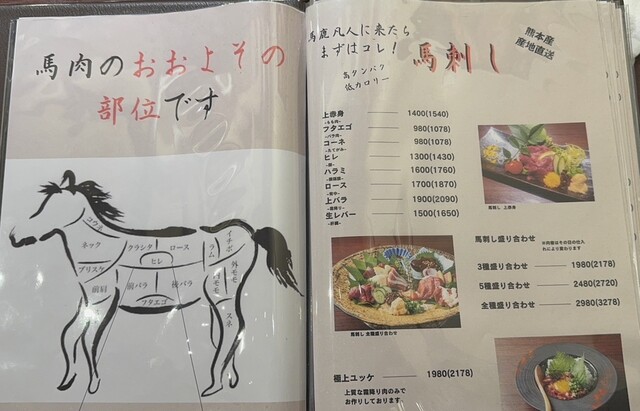 馬肉のおおよその
部位です
コウネ
ネック
クラシタ
ロース
ヒレ
ブリスケ
前バラ
後バラ
フタエゴ
前肩
ラム
イチボ
外モモ
内モモ
スネ
馬鹿凡人に来たら
まずはコレ!
高タンパク
低カロリー
馬刺し
熊本産
産地直送
上赤身 1400(1540)
~もも肉~
フタエゴ 980(1078)
~バラ肉~
コーネ 980(1078)
~たてがみ~
ヒレ 1300(1430)
ハラミ 1600(1760)
~横隔膜~
ロース 1700(1870)
上バラ 1900(2090)
~霜降り~
生レバー 1500(1650)
~肝臓~
馬刺し 上赤身
馬刺し盛り合わせ
※内容はその日の仕入
れにより変わります
3種盛り合わせ 1980(2178)
5種盛り合わせ 2480(2720)
全種盛り合わせ 2980(3278)
馬刺し 全種盛り合わせ
極上ユッケ 1980(2178)
上質な霜降り肉のみで
お作りしております